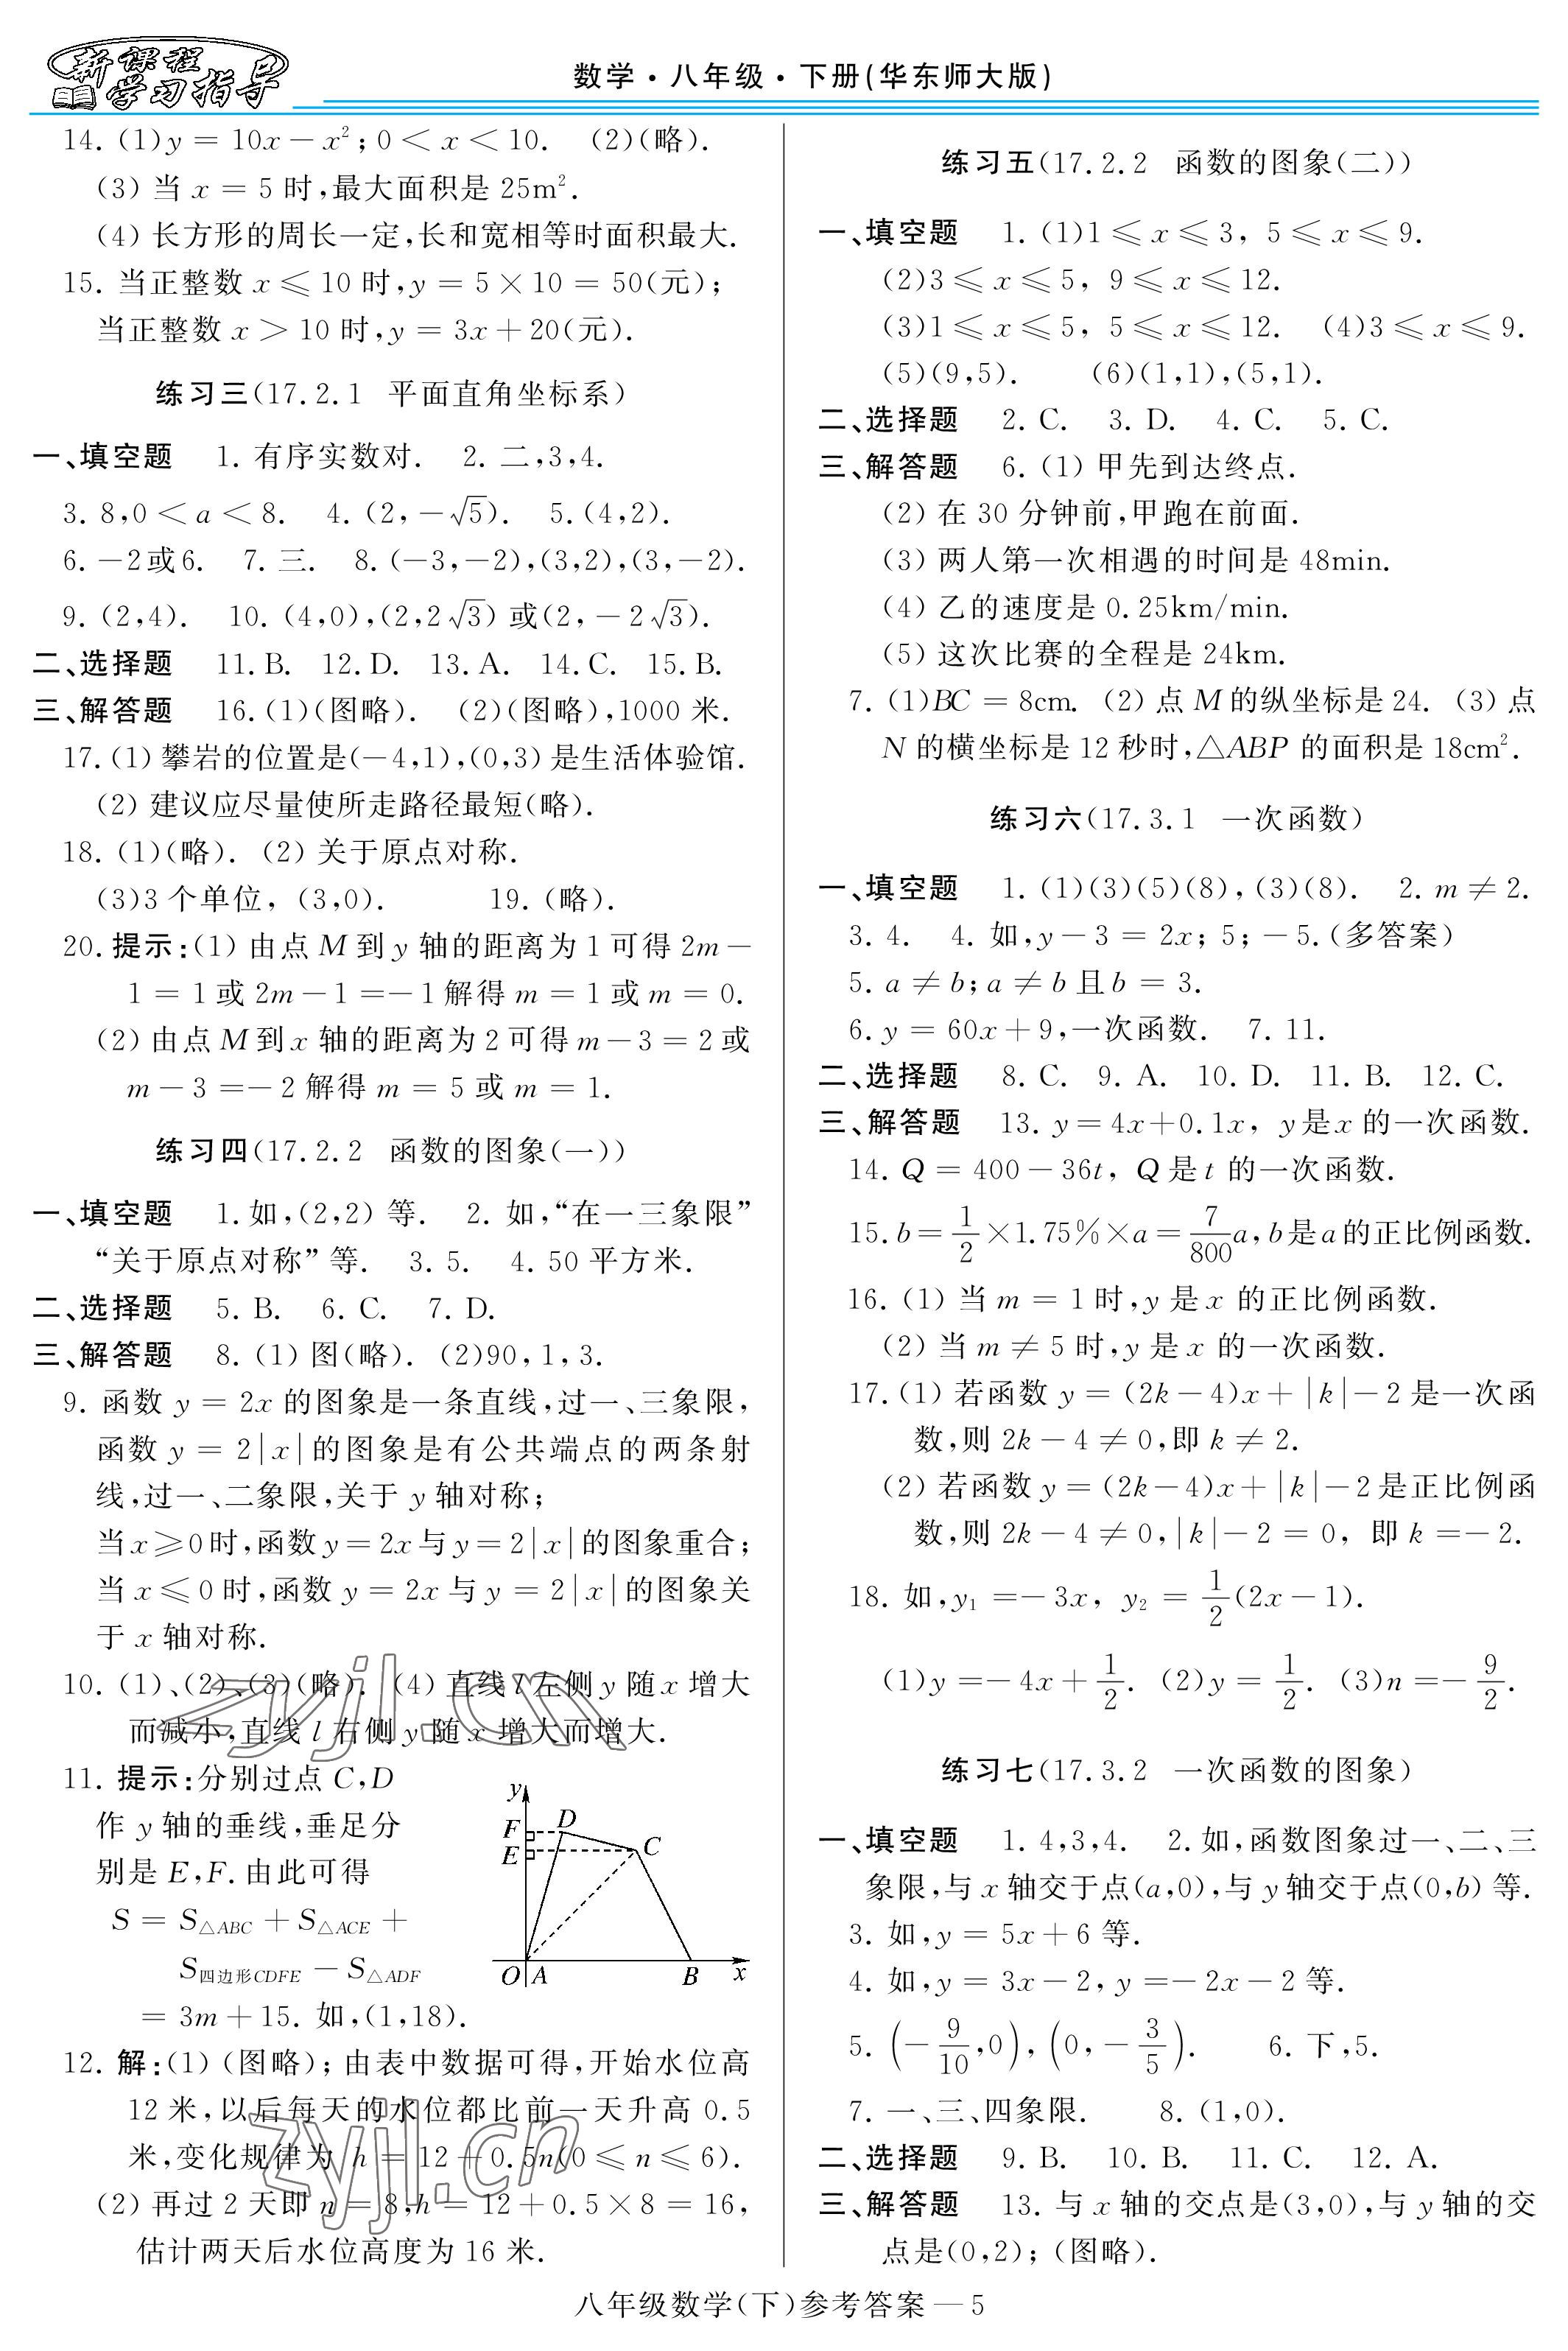 新课程
学习指导
数学·八年级·下册(华东师大版)
14. (1)y = 10x－x²；0 < x < 10. (2)(略).
(3) 当 x = 5 时,最大面积是 25m².
(4) 长方形的周长一定,长和宽相等时面积最大.
15. 当正整数 x ⩽ 10 时,y = 5×10 = 50(元)；
当正整数 x > 10 时,y = 3x＋20(元).
练习三(17.2.1 平面直角坐标系)
一、填空题 1. 有序实数对. 2. 二,3,4.
3. 8,0 < a < 8. 4. (2,－√5). 5. (4,2).
6. －2或6. 7. 三. 8. (－3,－2),(3,2),(3,－2).
9. (2,4). 10. (4,0),(2,2√3) 或(2,－2√3).
二、选择题 11. B. 12. D. 13. A. 14. C. 15. B.
三、解答题 16. (1)(图略). (2)(图略),1000 米.
17. (1) 攀岩的位置是(－4,1),(0,3) 是生活体验馆.
(2) 建议应尽量使所走路径最短(略).
18. (1)(略). (2) 关于原点对称.
(3)3 个单位, (3,0). 19. (略).
20. 提示:(1) 由点 M 到 y 轴的距离为 1 可得 2m－
1 = 1 或 2m－1 =－1 解得 m = 1 或 m = 0.
(2) 由点 M 到 x 轴的距离为 2 可得 m－3 = 2 或
m－3 =－2 解得 m = 5 或 m = 1.
练习四(17.2.2 函数的图象(一))
一、填空题 1. 如,(2,2) 等. 2. 如,“在一三象限”
“关于原点对称”等. 3. 5. 4. 50 平方米.
二、选择题 5. B. 6. C. 7. D.
三、解答题 8. (1) 图(略). (2)90, 1, 3.
9. 函数 y = 2x 的图象是一条直线,过一、三象限,
函数 y = 2|x| 的图象是有公共端点的两条射
线,过一、二象限,关于 y 轴对称；
当x⩾0时,函数y=2x与y=2|x|的图象重合；
当 x ⩽ 0 时,函数 y = 2x 与 y = 2|x| 的图象关
于 x 轴对称.
10. (1)、(2)、(3)(略). (4) 直线 l 左侧 y 随 x 增大
而减小,直线 l 右侧 y 随 x 增大而增大.
11. 提示:分别过点 C,D
作 y 轴的垂线,垂足分
别是 E,F. 由此可得
S = S△ABC＋S△ACE＋
S四边形CDFE－S△ADF
= 3m＋15. 如,(1,18).
y
F
D
E
C
O
A
B
x
12. 解:(1) (图略)；由表中数据可得,开始水位高
12 米,以后每天的水位都比前一天升高 0.5
米,变化规律为 h = 12＋0.5n(0 ⩽ n ⩽ 6).
(2) 再过 2 天即 n = 8,h = 12＋0.5×8 = 16,
估计两天后水位高度为 16 米.
练习五(17.2.2 函数的图象(二))
一、填空题 1. (1)1 ⩽ x ⩽ 3, 5 ⩽ x ⩽ 9.
(2)3 ⩽ x ⩽ 5, 9 ⩽ x ⩽ 12.
(3)1 ⩽ x ⩽ 5, 5 ⩽ x ⩽ 12. (4)3 ⩽ x ⩽ 9.
(5)(9,5). (6)(1,1),(5,1).
二、选择题 2. C. 3. D. 4. C. 5. C.
三、解答题 6. (1) 甲先到达终点.
(2) 在 30 分钟前,甲跑在前面.
(3) 两人第一次相遇的时间是 48min.
(4) 乙的速度是 0.25km/min.
(5) 这次比赛的全程是 24km.
7. (1)BC = 8cm. (2) 点 M 的纵坐标是 24. (3) 点
N 的横坐标是 12 秒时,△ABP 的面积是 18cm².
练习六(17.3.1 一次函数)
一、填空题 1. (1)(3)(5)(8),(3)(8). 2. m ≠ 2.
3. 4. 4. 如,y－3 = 2x；5；－5.(多答案)
5. a ≠ b；a ≠ b 且 b = 3.
6. y = 60x＋9,一次函数. 7. 11.
二、选择题 8. C. 9. A. 10. D. 11. B. 12. C.
三、解答题 13. y=4x＋0.1x, y是x 的一次函数.
14. Q = 400－36t, Q 是 t 的一次函数.
15. b=1/2×1.75%×a=7/800a,b是a的正比例函数.
16. (1) 当 m = 1 时,y 是 x 的正比例函数.
(2) 当 m ≠ 5 时,y 是 x 的一次函数.
17. (1) 若函数 y = (2k－4)x＋|k|－2 是一次函
数,则 2k－4 ≠ 0,即 k ≠ 2.
(2) 若函数 y = (2k－4)x＋|k|－2 是正比例函
数,则 2k－4 ≠ 0,|k|－2 = 0, 即 k =－2.
18. 如,y₁ =－3x, y₂ = 1/2(2x－1).
(1)y =－4x＋1/2. (2)y = 1/2. (3)n =－9/2.
练习七(17.3.2 一次函数的图象)
一、填空题 1. 4,3,4. 2. 如,函数图象过一、二、三
象限,与 x 轴交于点(a,0),与 y 轴交于点(0,b) 等.
3. 如,y = 5x＋6 等.
4. 如,y = 3x－2, y =－2x－2 等.
5. (－9/10,0), (0,－3/5). 6. 下,5.
7. 一、三、四象限. 8. (1,0).
二、选择题 9. B. 10. B. 11. C. 12. A.
三、解答题 13. 与 x 轴的交点是(3,0),与 y 轴的交
点是(0,2)；(图略).
zyjl.cn
zyjl.cn
八年级数学(下)参考答案—5